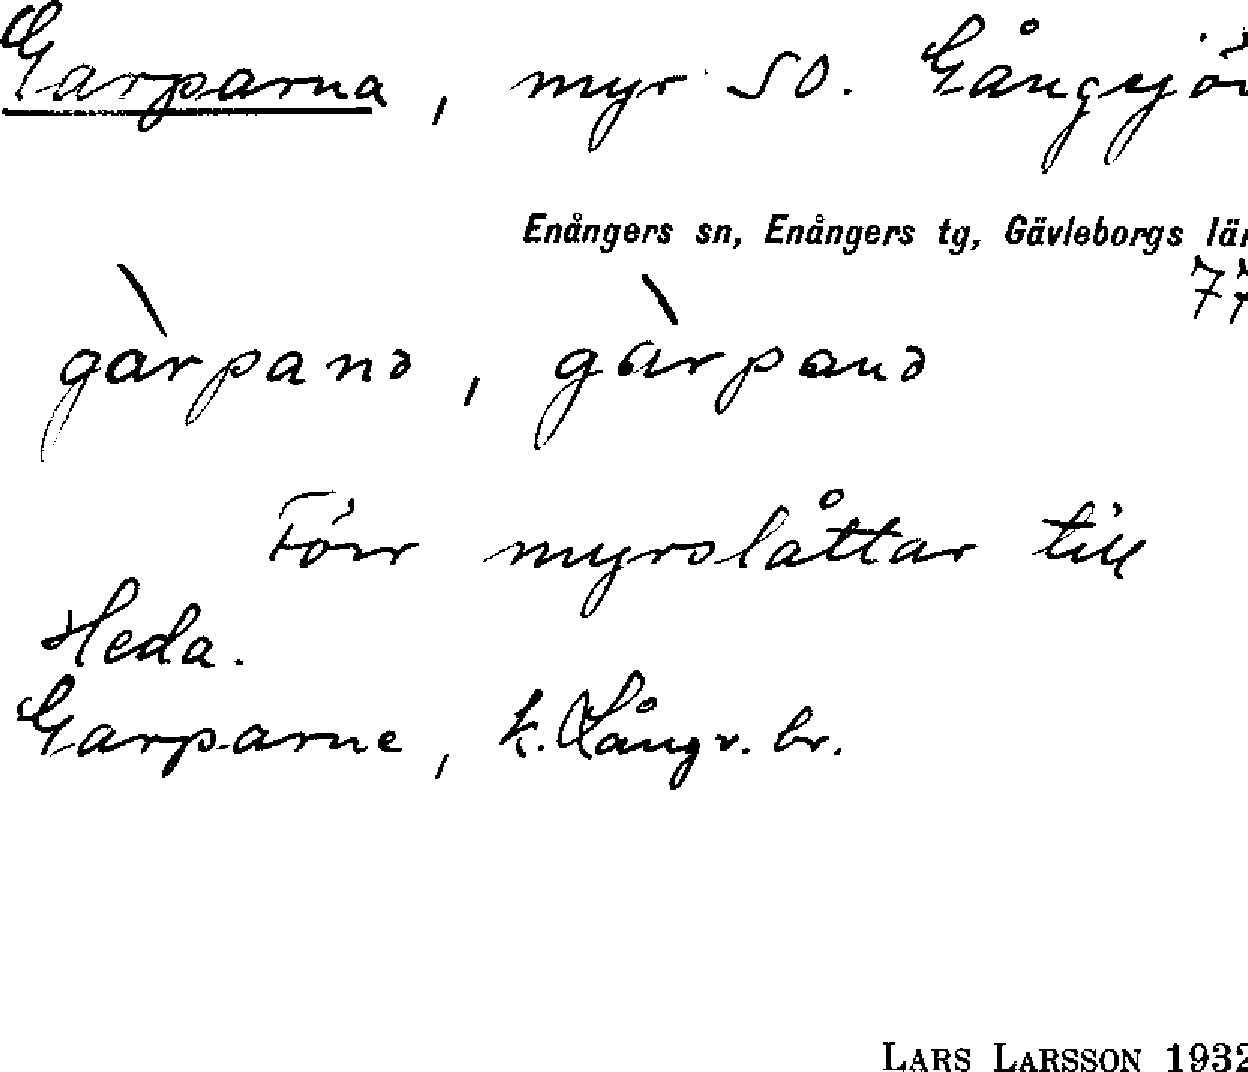 Garparna, myr SO. Gångsjön
Enångers sn, Enångers tg, Gävleborgs län
77
gàrpanə, gàrpanə
Förr myrslåttar till
Heda.
Garparne, k. Långv. br.
LARS LARSSON 1932